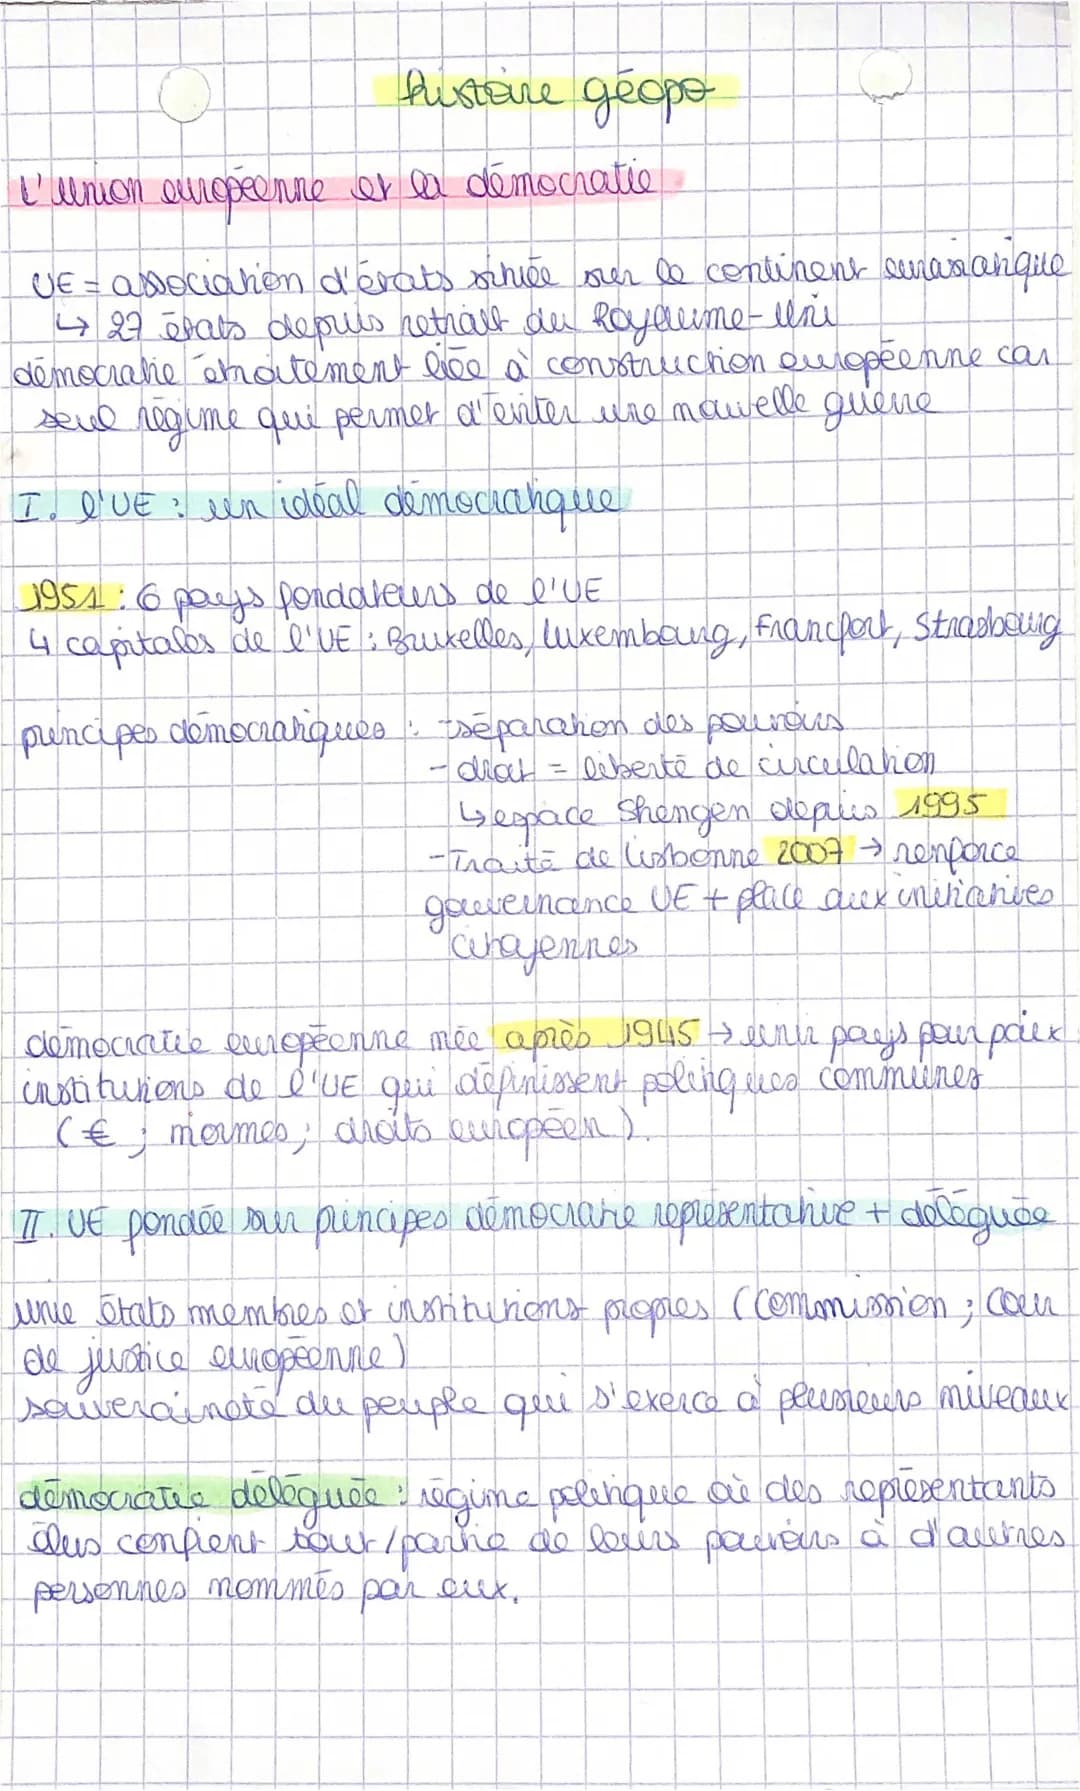 histoire géopo
L'union européenne et la démocratie
UE = association d'états située sur le continent eurasiatique
↳ 27 états depuis retrait du Royaume-Uni
démocratie étroitement liée à construction européenne car
seul régime qui permet d'éviter une nouvelle guerre
I. l'UE : un idéal démocratique
1951 : 6 pays fondateurs de l'UE
4 capitales de l'UE : Bruxelles, Luxembourg, Francfort, Strasbourg
principes démocratiques : - séparation des pouvoirs
- droit = liberté de circulation
↳ espace Shengen depuis 1995
- Traité de Lisbonne 2007 → renforce
gouvernance UE + place aux initiatives
citoyennes
démocratie européenne née après 1945 → unir pays pour paix
institutions de l'UE qui définissent politiques communes
(€ ; normes ; droits européen).
II. UE fondée sur principes démocratie représentative + déléguée
unie états membres et institutions propres (commission ; cour
de justice européenne)
souveraineté du peuple qui s'exerce à plusieurs niveaux
démocratie déléguée : régime politique où des représentants
élus confient tout/partie de leurs pouvoirs à d'autres
personnes nommés par eux.